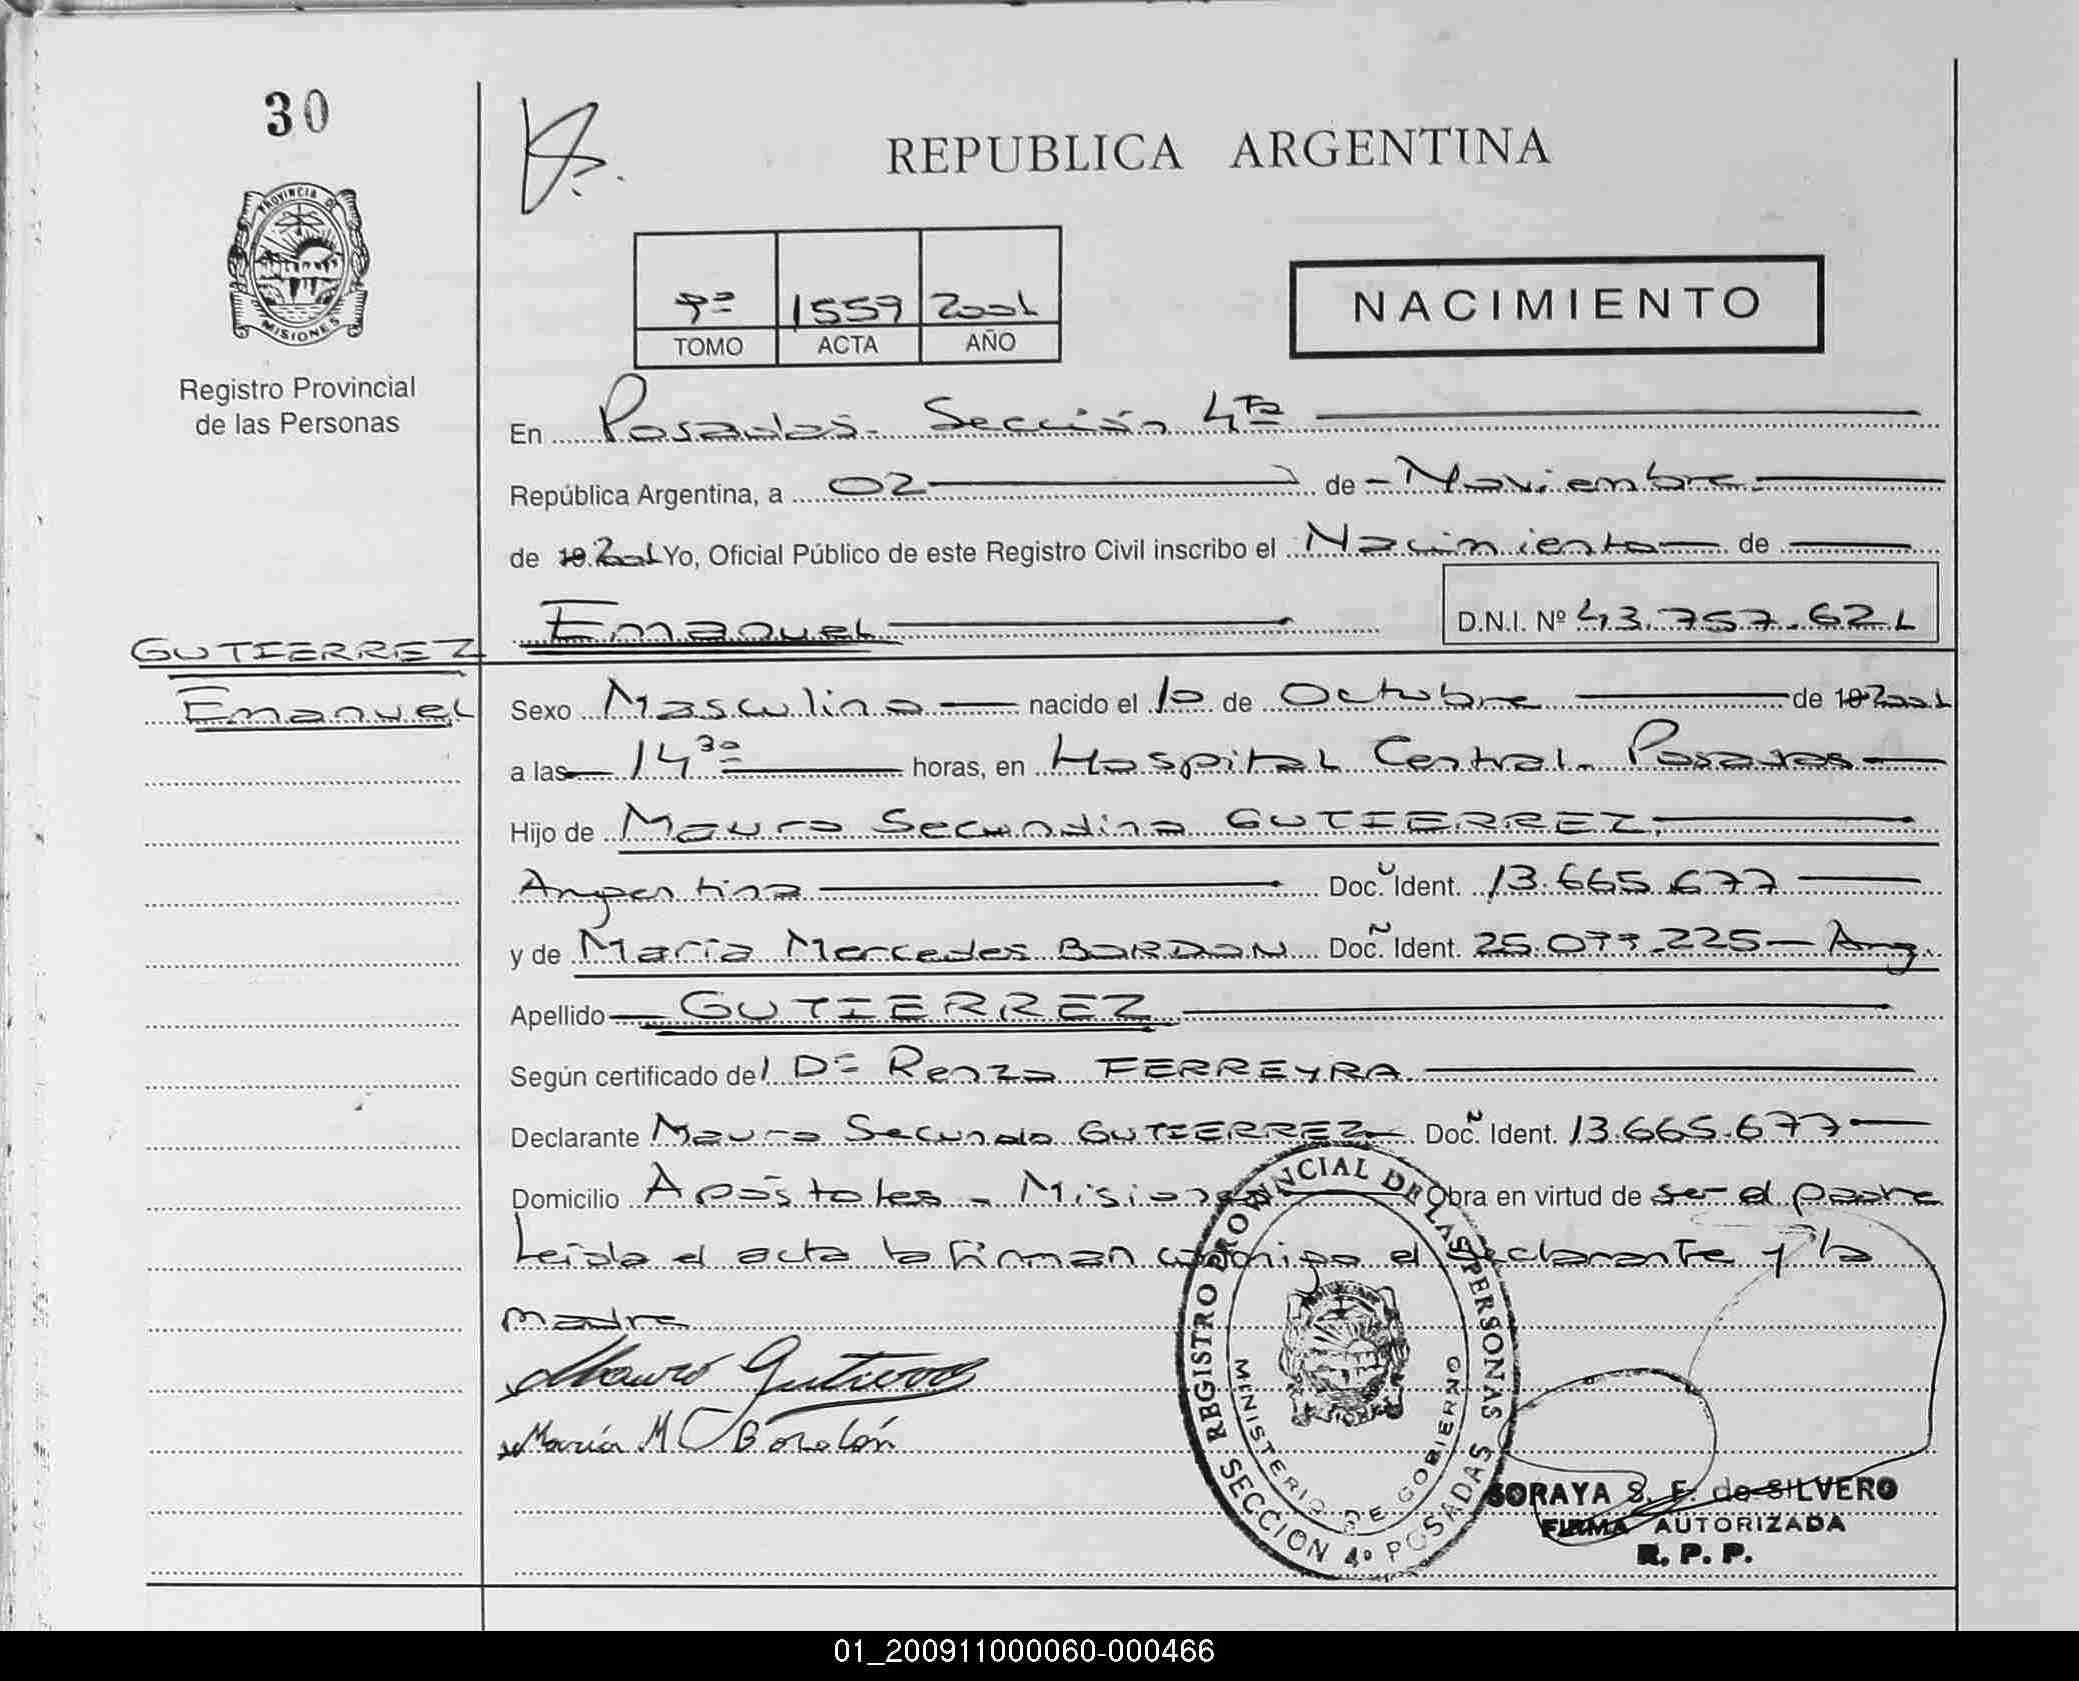 30
REPUBLICA ARGENTINA
PROVINCIA DE
MISIONES
Registro Provincial
de las Personas
1559 2001
TOMO ACTA AÑO
NACIMIENTO
En Posadas - Sección 4ta
República Argentina, a 02 de Noviembre
de 19 2001 Yo, Oficial Público de este Registro Civil inscribo el Nacimiento de
Emanuel D.N.I. Nº 43.757.621
GUTIERREZ
Emanuel
Sexo Masculino nacido el 10 de Octubre de 19 2001
a las 14 30 horas, en Hospital Central - Posadas
Hijo de Mauro Secundino GUTIERREZ
Argentina Doc. Ident. 13.665.677
y de María Mercedes BORDON Doc. Ident. 25.077.225 - Arg.
Apellido GUTIERREZ
Según certificado del Dr Renzo FERREYRA
Declarante Mauro Secundo GUTIERREZ Doc. Ident. 13.665.677
Domicilio Apóstoles - Misiones Obra en virtud de ser el padre
Leída el acta la firman conmigo el declarante y la
madre
Mauro Gutierrez
María M Bordón
REGISTRO PROVINCIAL DE LAS PERSONAS
MINISTERIO DE GOBIERNO
SECCION 4º POSADAS
SORAYA S. F. de SILVERO
FIRMA AUTORIZADA
R. P. P.
01_200911000060-000466